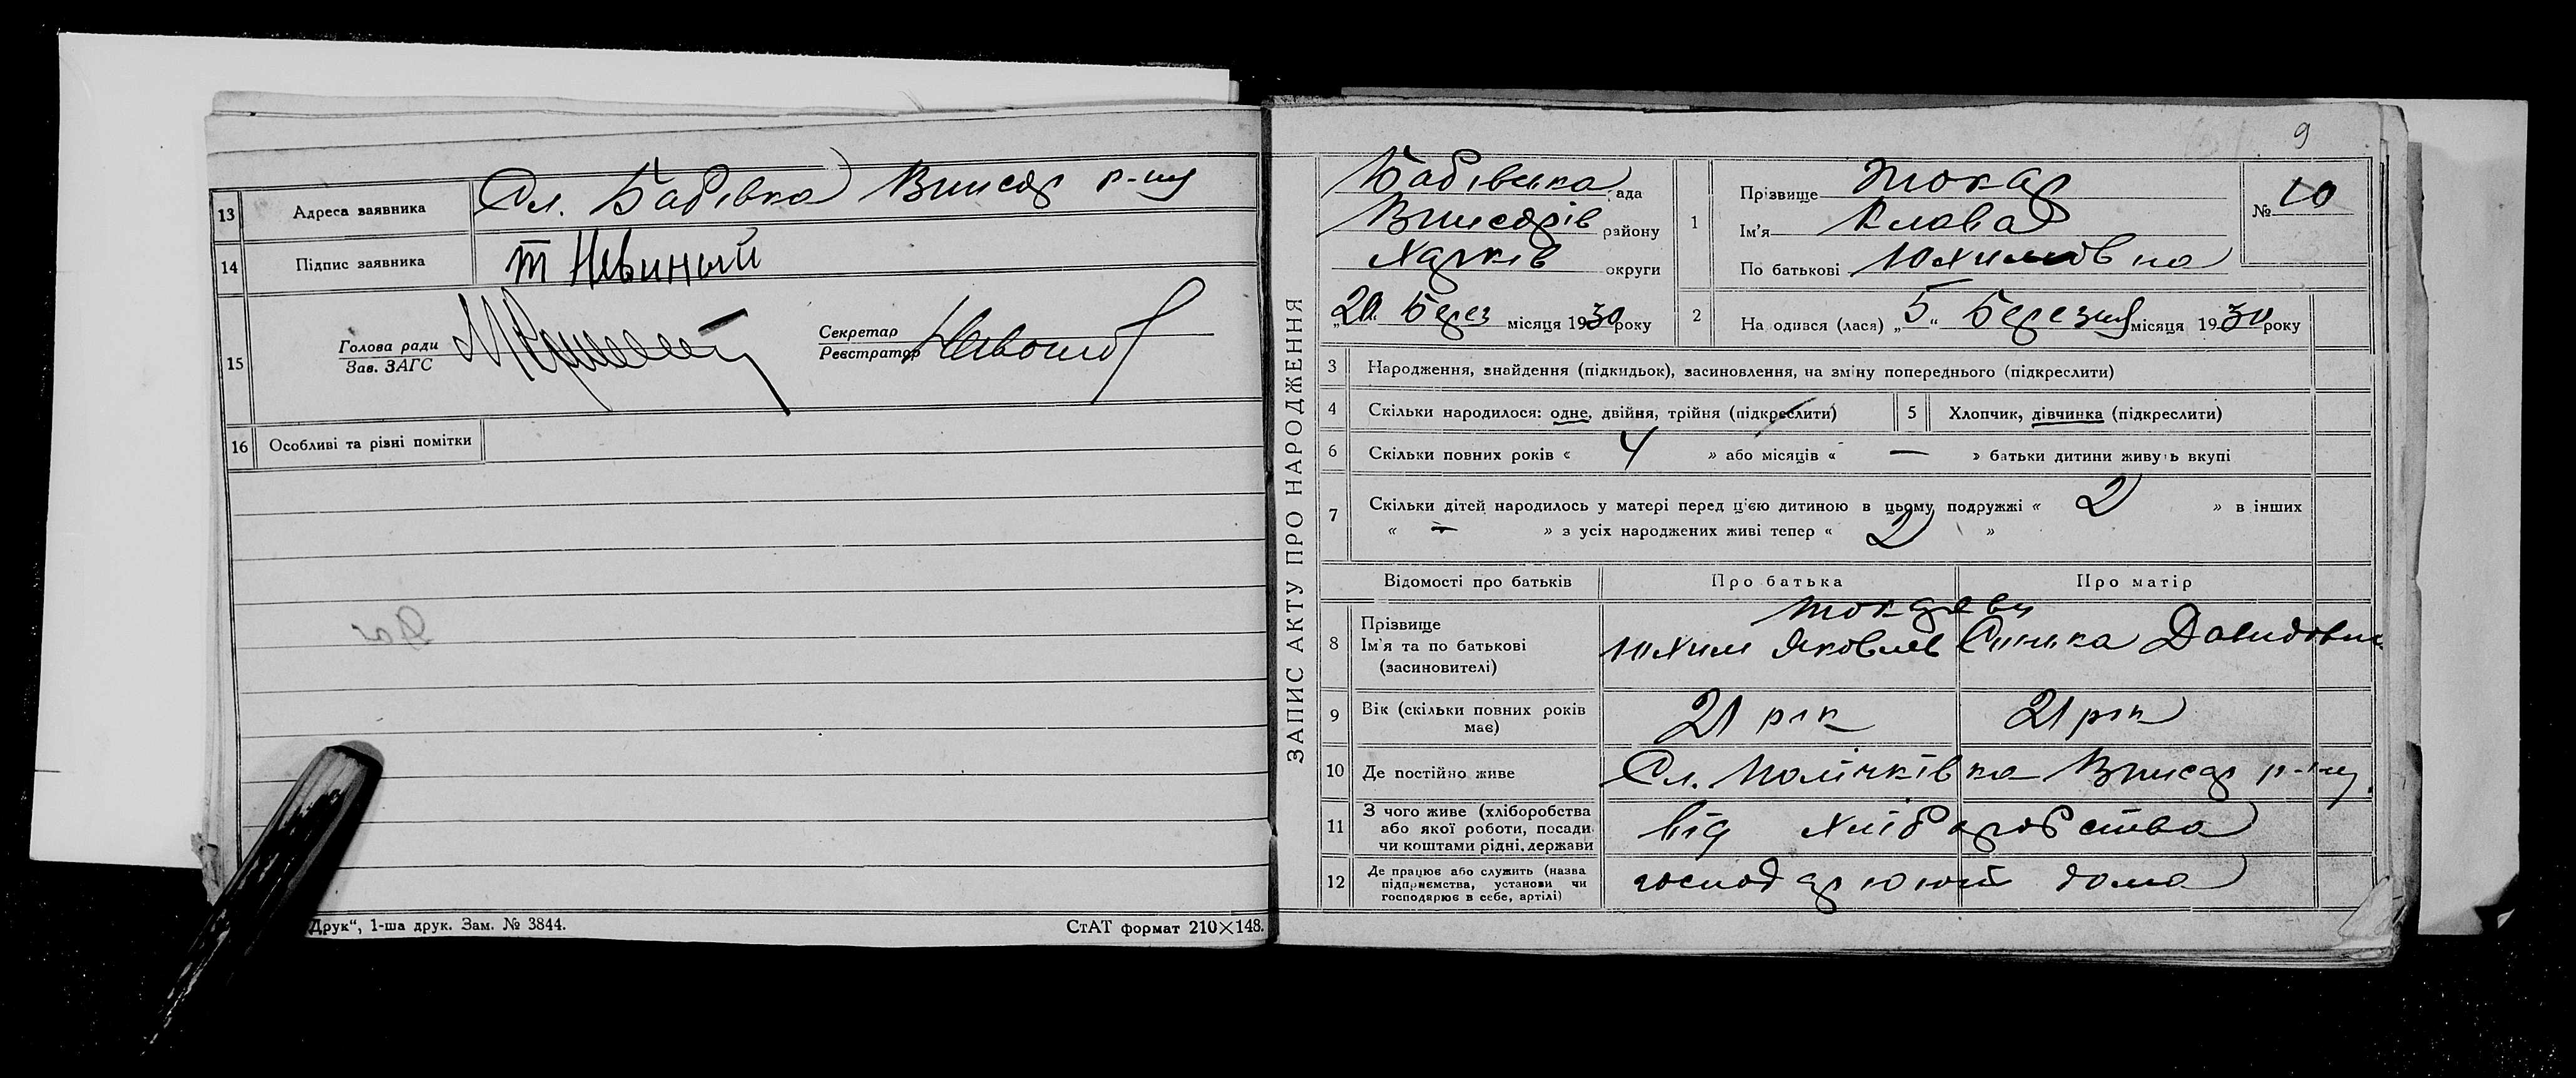 13 Адреса заявника Сл. Бабівка Вписар р-ну
14 Підпис заявника т Невиный
15 Голова ради
Зав. ЗАГС
Секретар
Реєстратор
16 Особливі та різні помітки
Друк“, 1-ша друк. Зам. № 3844.
СтАТ формат 210×148.
9
ЗАПИС АКТУ ПРО НАРОДЖЕННЯ
Бабівська рада
району
Харків округи
„20“ Берез місяця 1930 року
1 Прізвище Токар
Ім'я Клава
По батькові Юхимовна
№ 10
2 На одився (лася) „5“ Березня місяця 1930 року
3 Народження, знайдення (підкидьок), засиновлення, на зміну попереднього (підкреслити)
4 Скільки народилося: одне, двійня, трійня (підкреслити)
5 Хлопчик, дівчинка (підкреслити)
6 Скільки повних років « 4 » або місяців « — » батьки дитини живуть вкупі
7 Скільки дітей народилось у матері перед цією дитиною в цьому подружжі « 2 » в інших
« — » з усіх народжених живі тепер « 2 »
Відомості про батьків Про батька Про матір
8 Прізвище
Ім'я та по батькові
(засиновителі)
Токареви
Юхим Яковлев Давидовн
9 Вік (скільки повних років має) 21 рік 21 рік
10 Де постійно живе Сл. р-ну
11 З чого живе (хліборобства
або якої роботи, посади
чи коштами рідні, держави
від хліборобства
12 Де працює або служить (назва
підприємства, установи чи
господарює в себе, артілі)
господарюют дома